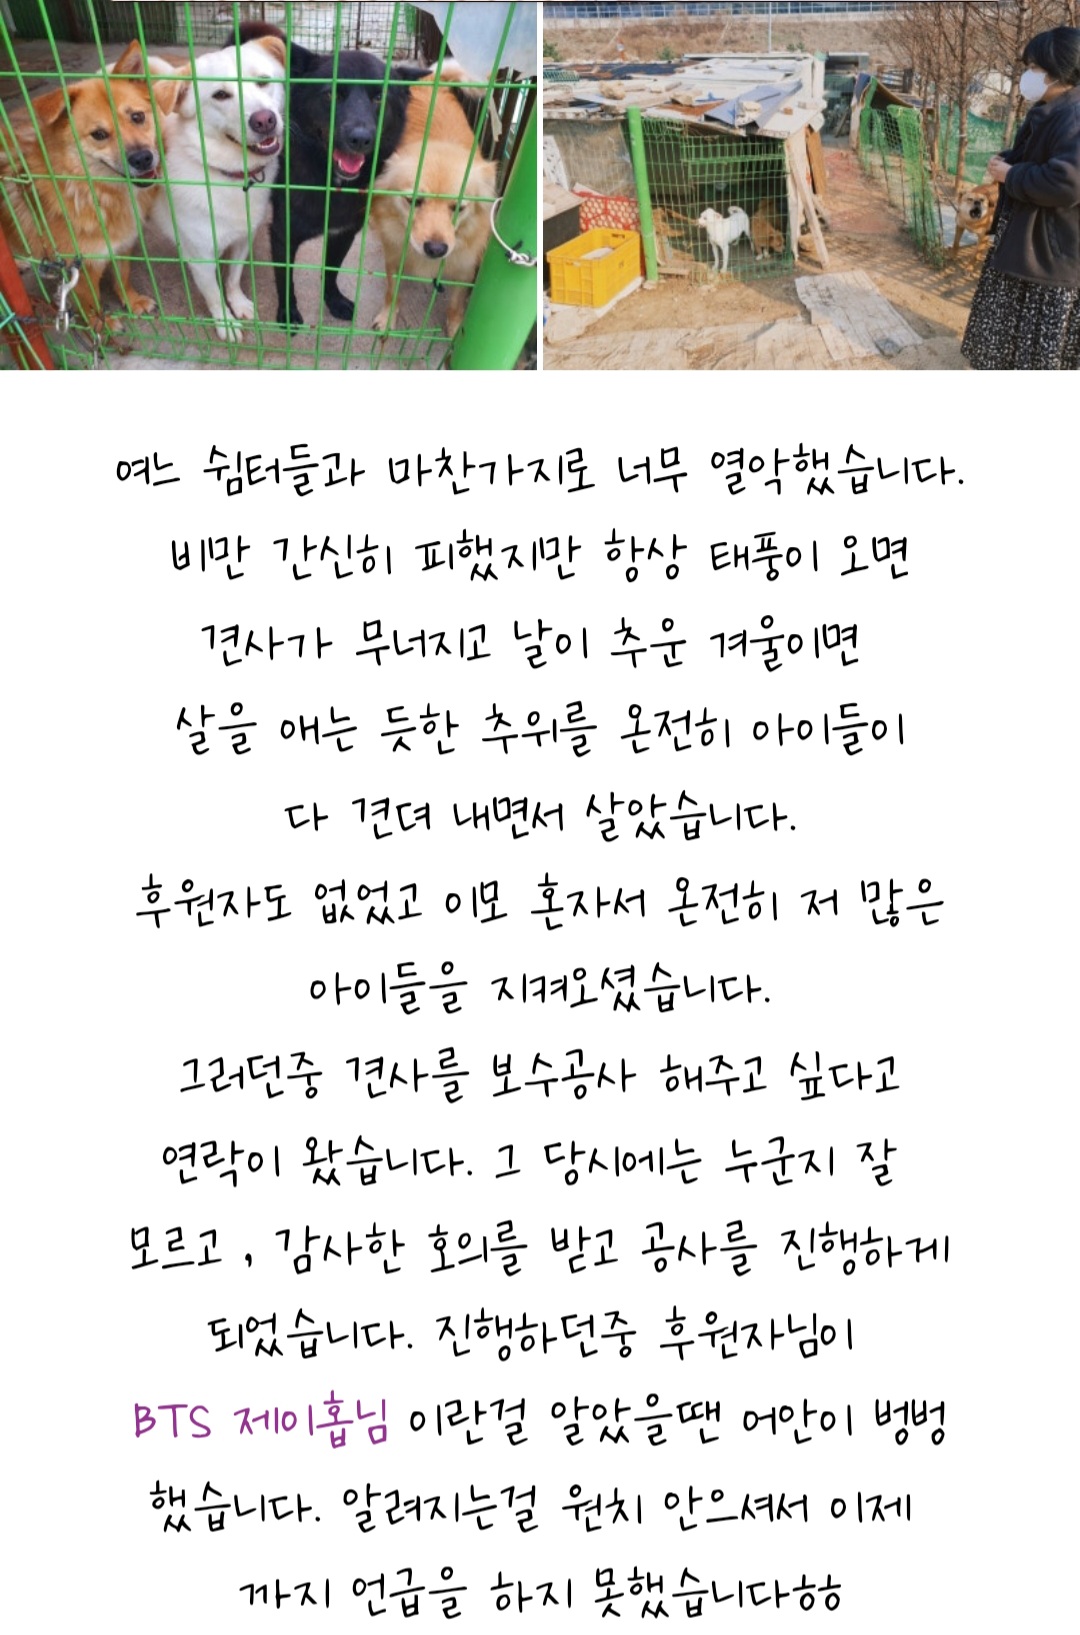 여느 쉼터들과 마찬가지로 너무 열악했습니다.
비만 간신히 피했지만 항상 태풍이 오면
견사가 무너지고 날이 추운 겨울이면
살을 애는 듯한 추위를 온전히 아이들이
다 견뎌 내면서 살았습니다.
후원자도 없었고 이모 혼자서 온전히 저 많은
아이들을 지켜오셨습니다.
그러던중 견사를 보수공사 해주고 싶다고
연락이 왔습니다. 그 당시에는 누군지 잘
모르고 , 감사한 호의를 받고 공사를 진행하게
되었습니다. 진행하던중 후원자님이
BTS 제이홉님 이란걸 알았을땐 어안이 벙벙
했습니다. 알려지는걸 원치 안으셔서 이제
까지 언급을 하지 못했습니다ㅎㅎ